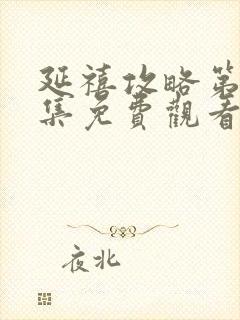 延禧攻略第
集免費觀看
夜北